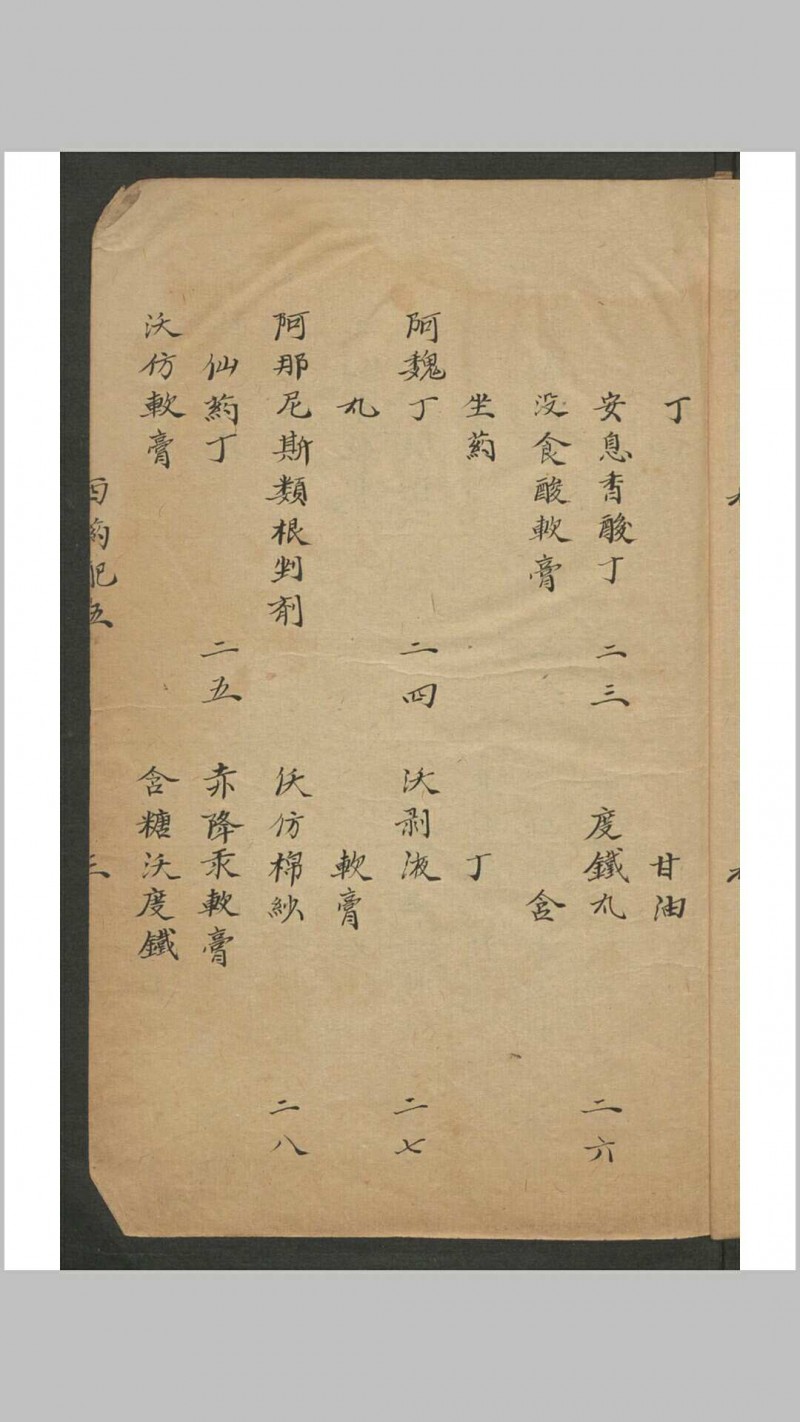 丁
安息香酸丁 二三
没食酸軟膏
坐药
阿魏丁 二四
丸
阿那尼斯類根剉剤
仙药丁 二五
沃仿軟膏
甘油
度鐵丸 二六
含
丁
沃剥液 二七
軟膏
沃仿棉紗 二八
赤降汞軟膏
含糖沃度鐵
五
三